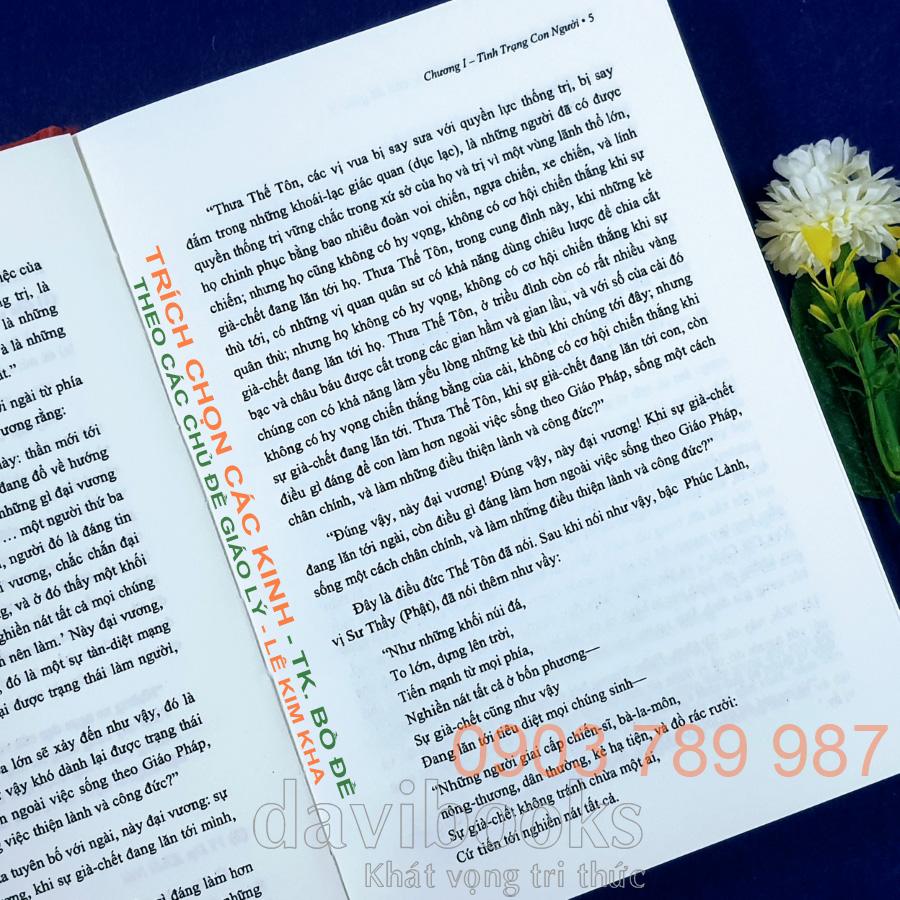 iệc của
ng trị, là
là những
à là những
ất.”
ới ngài từ phía
vương rằng:
này: thần mới tới
đang đổ về hướng
những gì đại vương
… một người thứ ba
người đó là đáng tin
vương, chắc chắn đại
ng, và ở đó thấy một khối
nghiền nát tất cả mọi chúng
n nên làm.’ Này đại vương,
đó là một sự tàn-diệt mạng
ại được trạng thái làm người,
a lớn sẽ xảy đến như vậy, đó là
vậy khó dành lại được trạng thái
n ngoài việc sống theo Giáo Pháp,
g việc thiện lành và công đức?”
a tuyên bố với ngài, này đại vương: sự
ng, khi sự già-chết đang lăn tới mình,
gì đáng làm hơn
những
Chương I – Tình Trạng Con Người • 5
“Thưa Thế Tôn, các vị vua bị say sưa với quyền lực thống trị, bị say
đắm trong những khoái-lạc giác quan (dục lạc), là những người đã có được
quyền thống trị vững chắc trong xứ sở của họ và trị vì một vùng lãnh thổ lớn,
họ chinh phục bằng bao nhiêu đoàn voi chiến, ngựa chiến, xe chiến, và lính
chiến; nhưng họ cũng không có hy vọng, không có cơ hội chiến thắng khi sự
già-chết đang lăn tới họ. Thưa Thế Tôn, trong cung đình này, khi những kẻ
thù tới, có những vị quan quân sư có khả năng dùng chiêu lược để chia cắt
quân thù; nhưng họ không có hy vọng, không có cơ hội chiến thắng khi sự
già-chết đang lăn tới họ. Thưa Thế Tôn, ở triều đình còn có rất nhiều vàng
bạc và châu báu được cất trong các gian hầm và gian lầu, và với số của cải đó
chúng con có khả năng làm yếu lòng những kẻ thù khi chúng tới đây; nhưng
không có hy vọng chiến thắng bằng của cải, không có cơ hội chiến thắng khi
sự già-chết đang lăn tới. Thưa Thế Tôn, khi sự già-chết đang lăn tới con, còn
điều gì đáng để con làm hơn ngoài việc sống theo Giáo Pháp, sống một cách
chân chính, và làm những điều thiện lành và công đức?”
“Đúng vậy, này đại vương! Đúng vậy, này đại vương! Khi sự già-chết
đang lăn tới ngài, còn điều gì đáng làm hơn ngoài việc sống theo Giáo Pháp,
sống một cách chân chính, và làm những điều thiện lành và công đức?”
Đây là điều đức Thế Tôn đã nói. Sau khi nói như vậy, bậc Phúc Lành,
vị Sư Thầy (Phật), đã nói thêm như vầy:
“Như những khối núi đá,
To lớn, dựng lên trời,
Tiến mạnh từ mọi phía,
Nghiền nát tất cả ở bốn phương—
Sự già-chết cũng như vậy
Đang lăn tới tiêu diệt mọi chúng sinh—
“Những người giai cấp chiến-sĩ, bà-la-môn,
nông-thương, dân thường, kẻ hạ tiện, và đổ rác rưởi:
Sự già-chết không tránh chừa một ai,
Cứ tiến tới nghiền nát tất cả.
TRÍCH CHỌN CÁC KINH - TK. BỒ ĐỀ
THEO CÁC CHỦ ĐỀ GIÁO LÝ - LÊ KIM KHA
0903 789 987
davibooks
Khát vọng tri thức